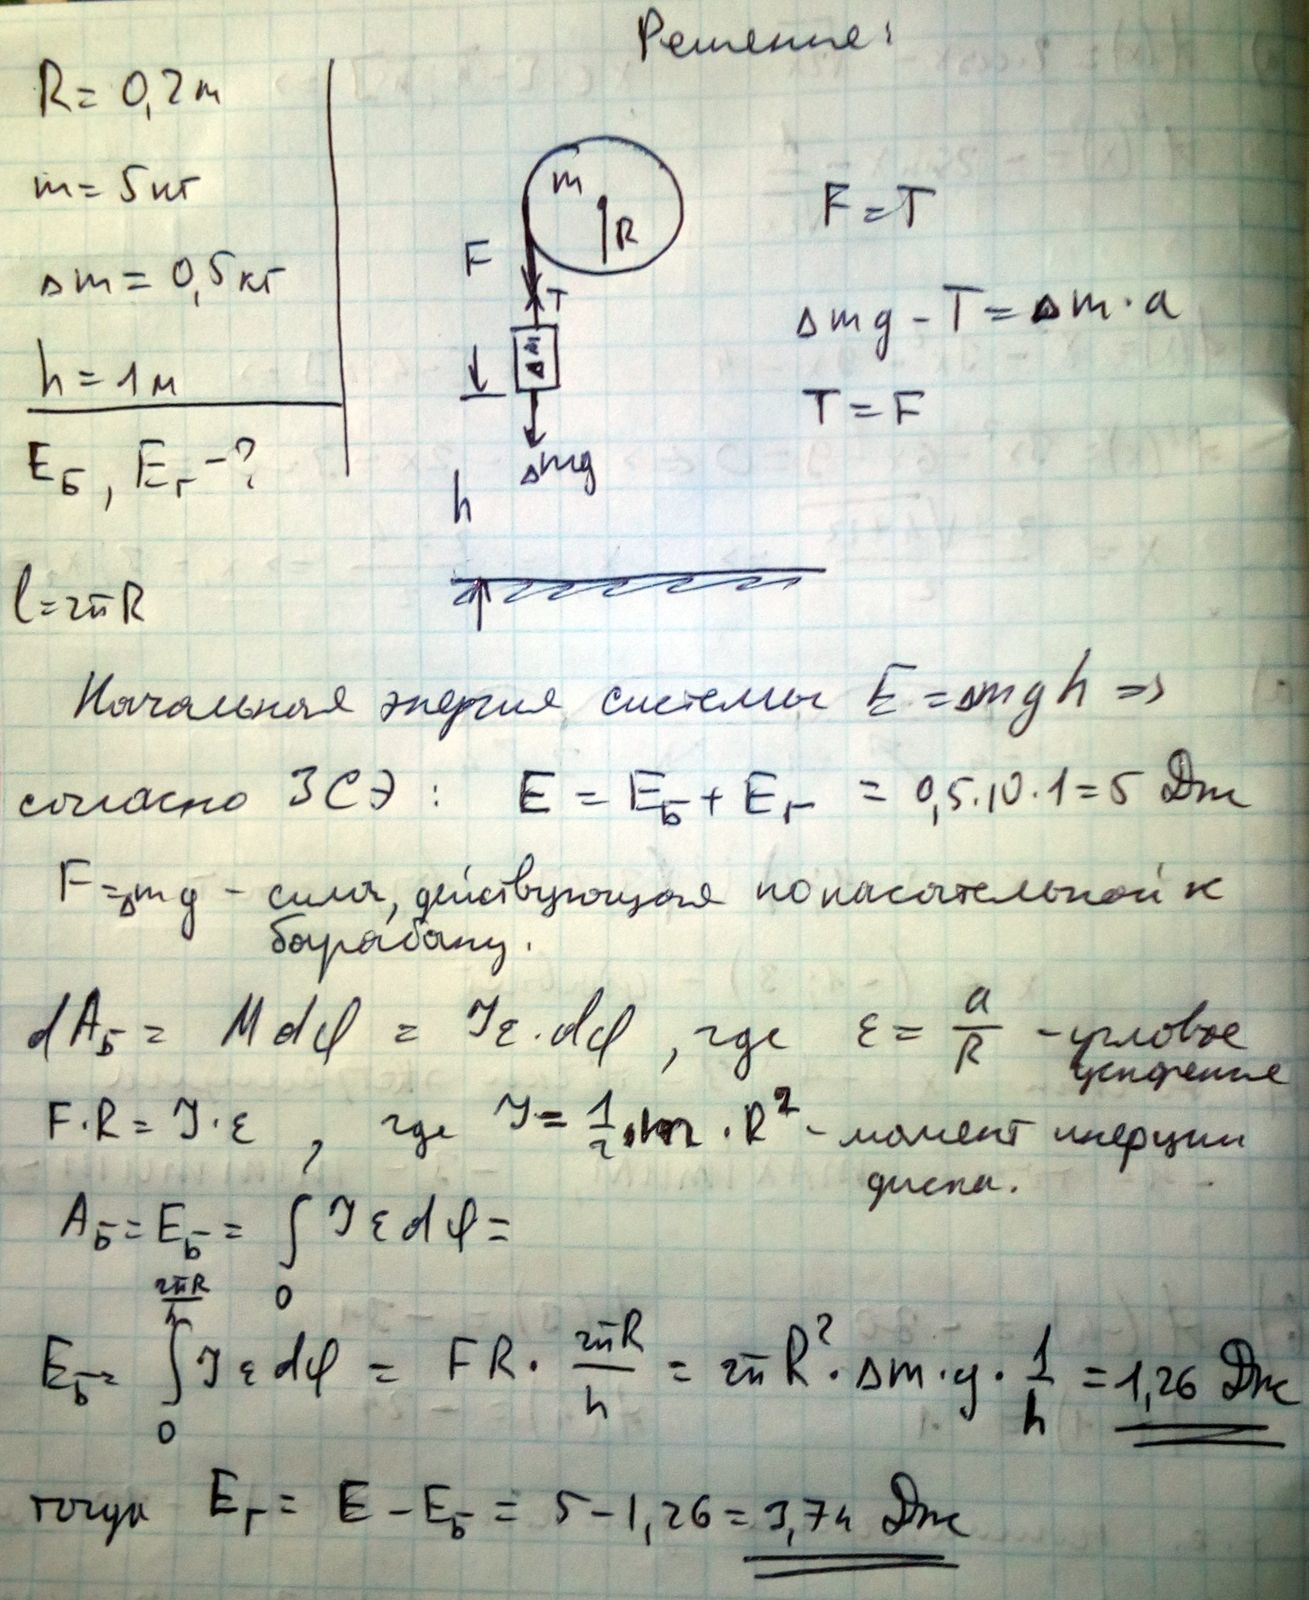 Решение:
R = 0,2 м
m = 5 кг
Δm = 0,5 кг
h = 1 м
E_Б, E_Г - ?
l = 2πR
m
R
F
T
Δm
Δmg
h
F = T
Δmg - T = Δm · a
T = F
Начальная энергия системы E = Δmgh =>
согласно ЗСЭ: E = E_Б + E_Г = 0,5·10·1 = 5 Дж
F = Δmg - сила, действующая по касательной к
барабану.
dA_Б = M dφ = Jε·dφ, где ε = a/R - угловое
ускорение
F·R = J·ε, где J = 1/2 m·R² - момент инерции
диска.
A_Б = E_Б = ∫₀ Jεdφ =
E_Б = ∫₀^(2πR/h) Jεdφ = FR · 2πR/h = 2πR² · Δm·g · 1/h = 1,26 Дж
тогда E_Г = E - E_Б = 5 - 1,26 = 3,74 Дж